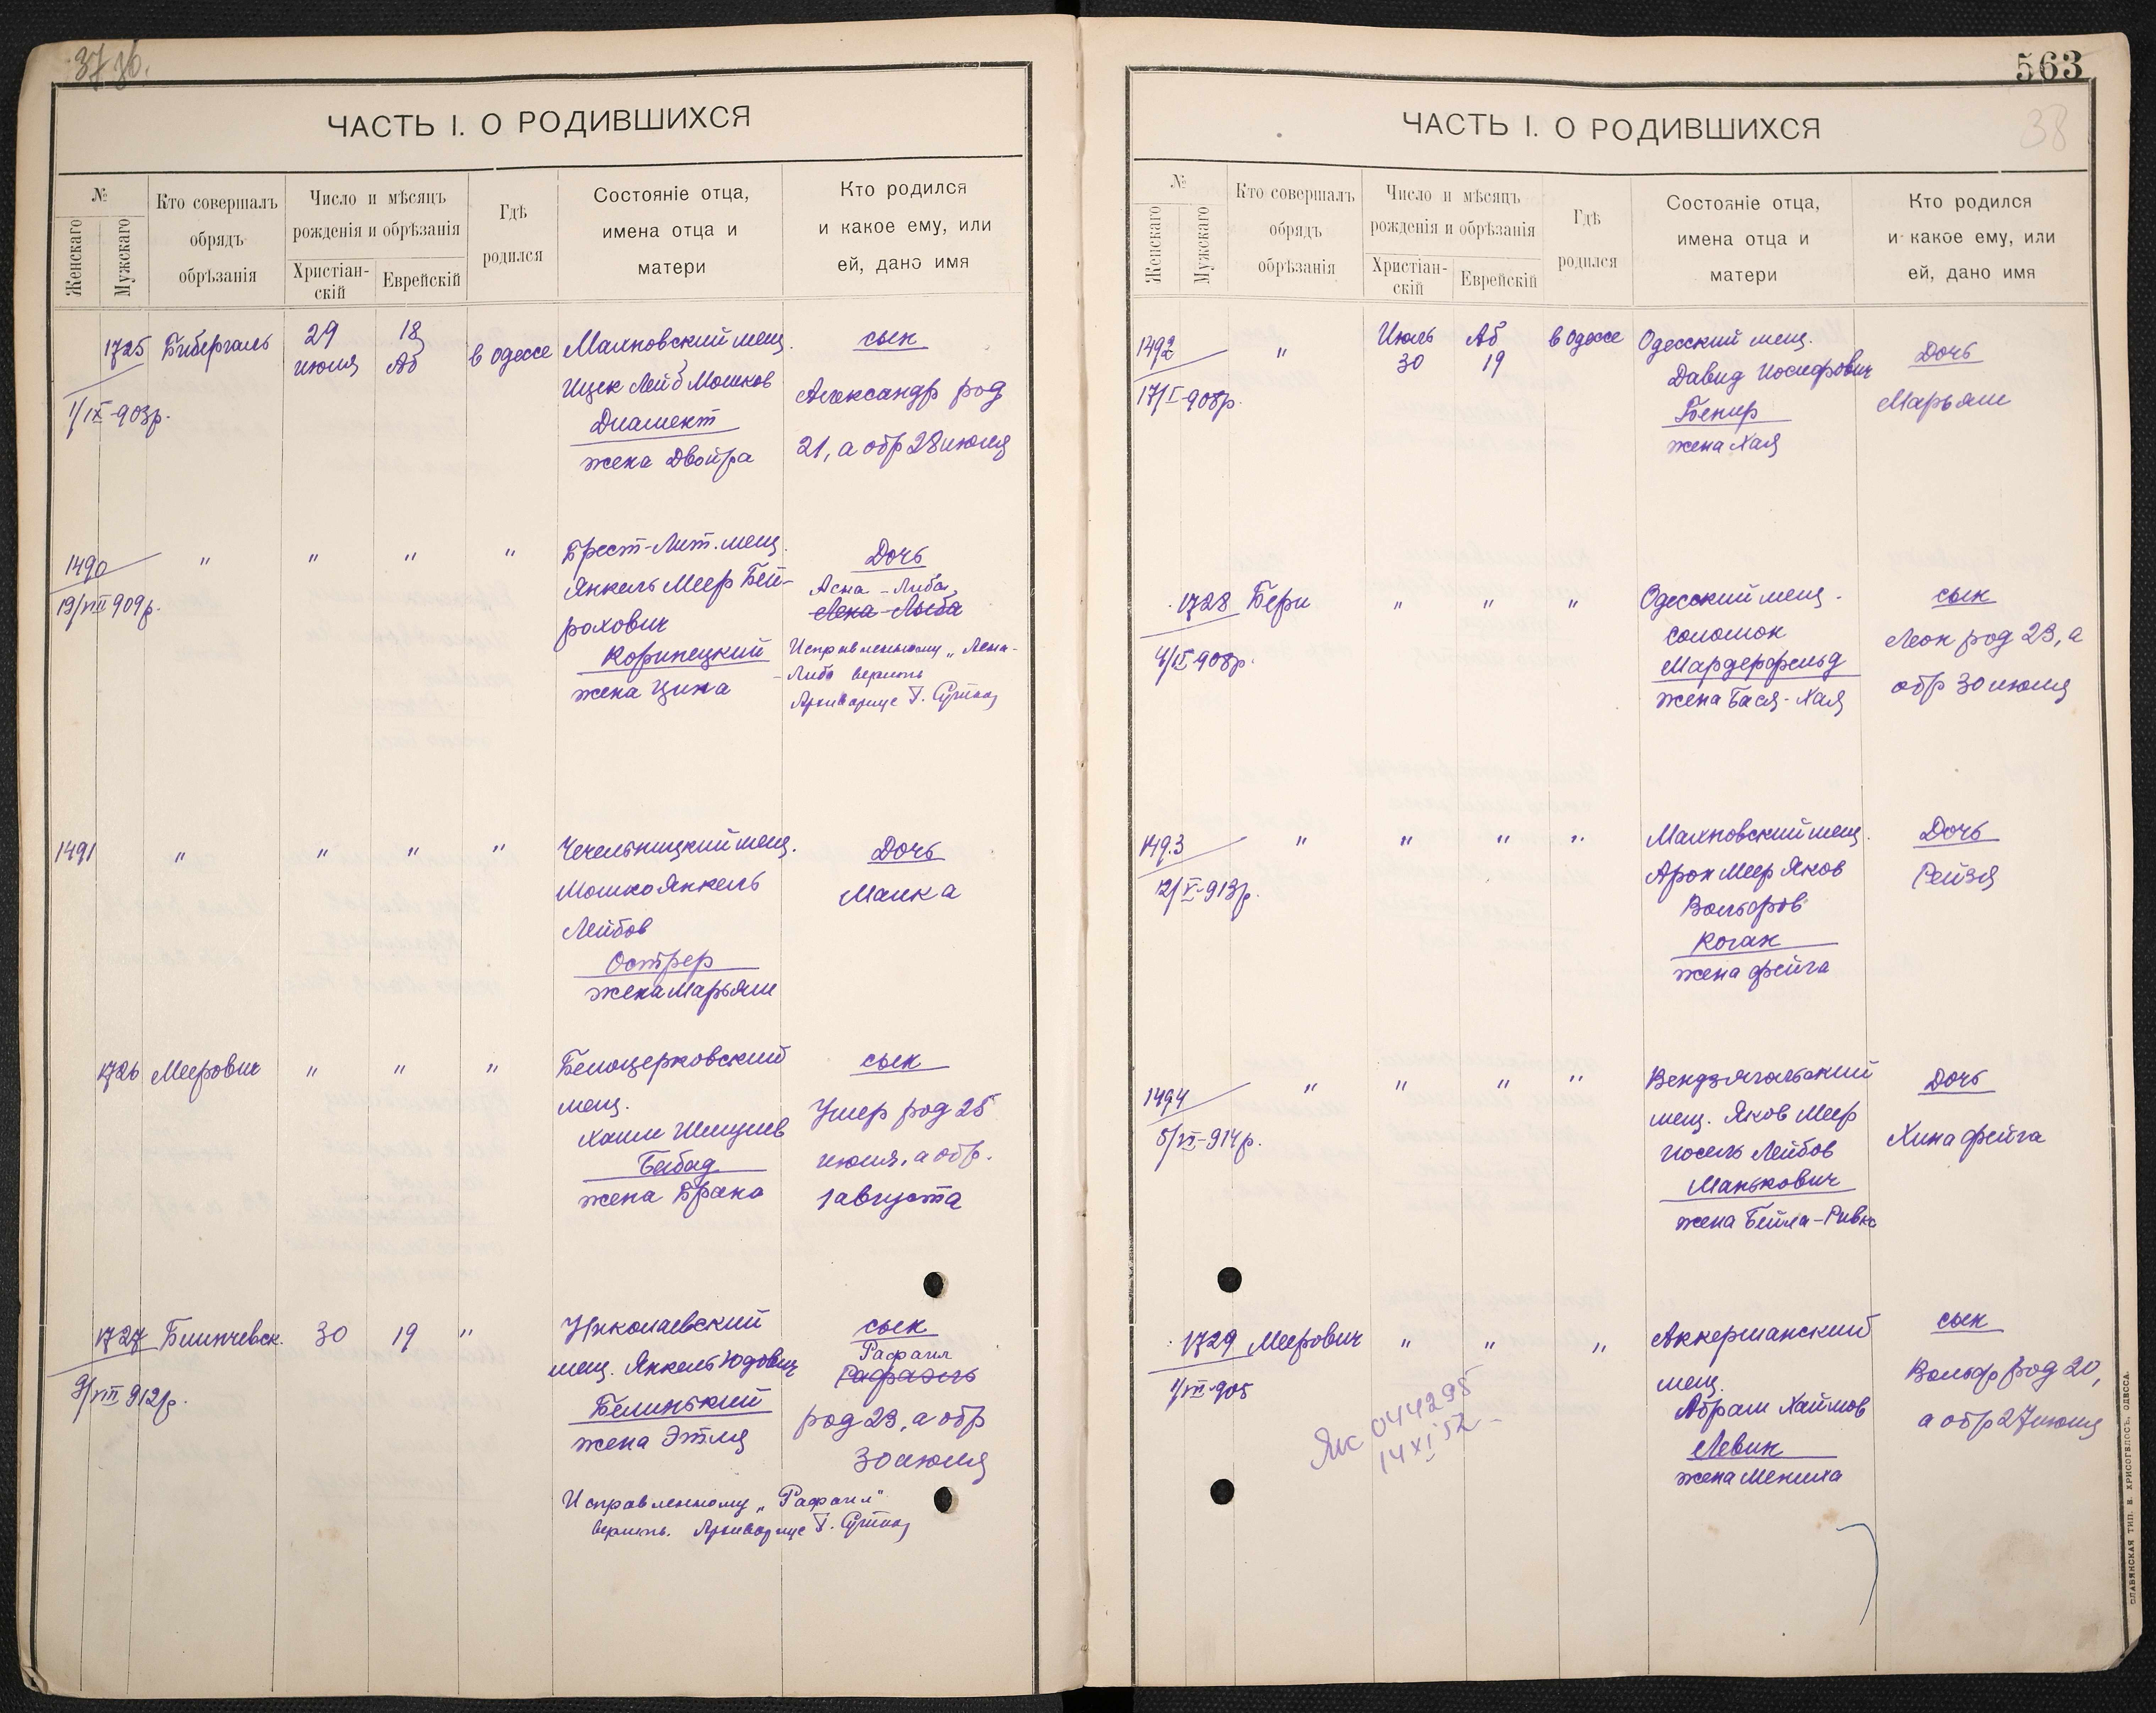 37
ЧАСТЬ I. О РОДИВШИХСЯ
№
Женскаго
Мужскаго
Кто совершалъ
обрядъ
обрѣзанія
Число и мѣсяцъ
рожденія и обрѣзанія
Христіан-
скій
Еврейскій
Гдѣ
родился
Состояніе отца,
имена отца и
матери
Кто родился
и какое ему, или
ей, дано имя
1725
1/IX-903р.
Бибергаль
29
июля
18
Аб
в Одессе
Махновский мещ.
Ицек Лейб Мошков
Диамент
жена Двойра
сын
Александр род
21, а обр 28 июля
1490
19/VIII 909р.
"
"
"
"
Брест-Лит. мещ.
Янкель Меер Бей-
рохович
Коринецкий
жена Цина
Дочь
Асна-Либа
Исправленному „
Либа верить
1491
"
"
"
"
Чечельницкий мещ.
Мошко Янкель
Лейбов
Острер
жена Марьям
Дочь
Манка
1726
Меерович
"
"
"
Белоцерковский
мещ.
Хаим Шмулев
Бебад
жена Брана
сын
Ушер род 25
июля, а обр.
1 августа
1727
9/VIII 912р.
30
19
"
Николаевский
мещ. Янкель Юдович
Белинький
жена Этля
сын
Рафаил
Рафаэль
род 23, а обр
30 июля
Исправленному „Рафаил"
верить.
563
38
ЧАСТЬ I. О РОДИВШИХСЯ
№
Женскаго
Мужскаго
Кто совершалъ
обрядъ
обрѣзанія
Число и мѣсяцъ
рожденія и обрѣзанія
Христіан-
скій
Еврейскій
Гдѣ
родился
Состояніе отца,
имена отца и
матери
Кто родился
и какое ему, или
ей, дано имя
1492
17/I-908р.
"
Июль
30
Аб
19
в Одессе
Одесский мещ.
Давид Иосифович
Бенир
жена Хая
Дочь
Марьям
1728
Бери
"
"
"
Одесский мещ.
Соломон
Мардерфельд
жена Бася-Хая
сын
Леон род 23, а
обр 30 июля
1493
12/V-913р.
"
"
"
"
Махновский мещ.
Арон Меер Яков
Вольфов
Коган
жена Фейга
Дочь
Рейзя
1494
5/VI-914р.
"
"
"
"
Вендзягольский
мещ. Яков Меер
Иосель Лейбов
Манькович
жена Бейла-Ривка
Дочь
Хина Фейга
1729
1/VIII-905
Меерович
"
"
"
Аккерманский
мещ.
Абрам Хаимов
Левин
жена Мениха
сын
Вольф род 20,
а обр 27 июля
044295
14 XI 52
СЛАВЯНСКАЯ ТИП. Н. ХРИСОГЕЛОСЪ, ОДЕССА.